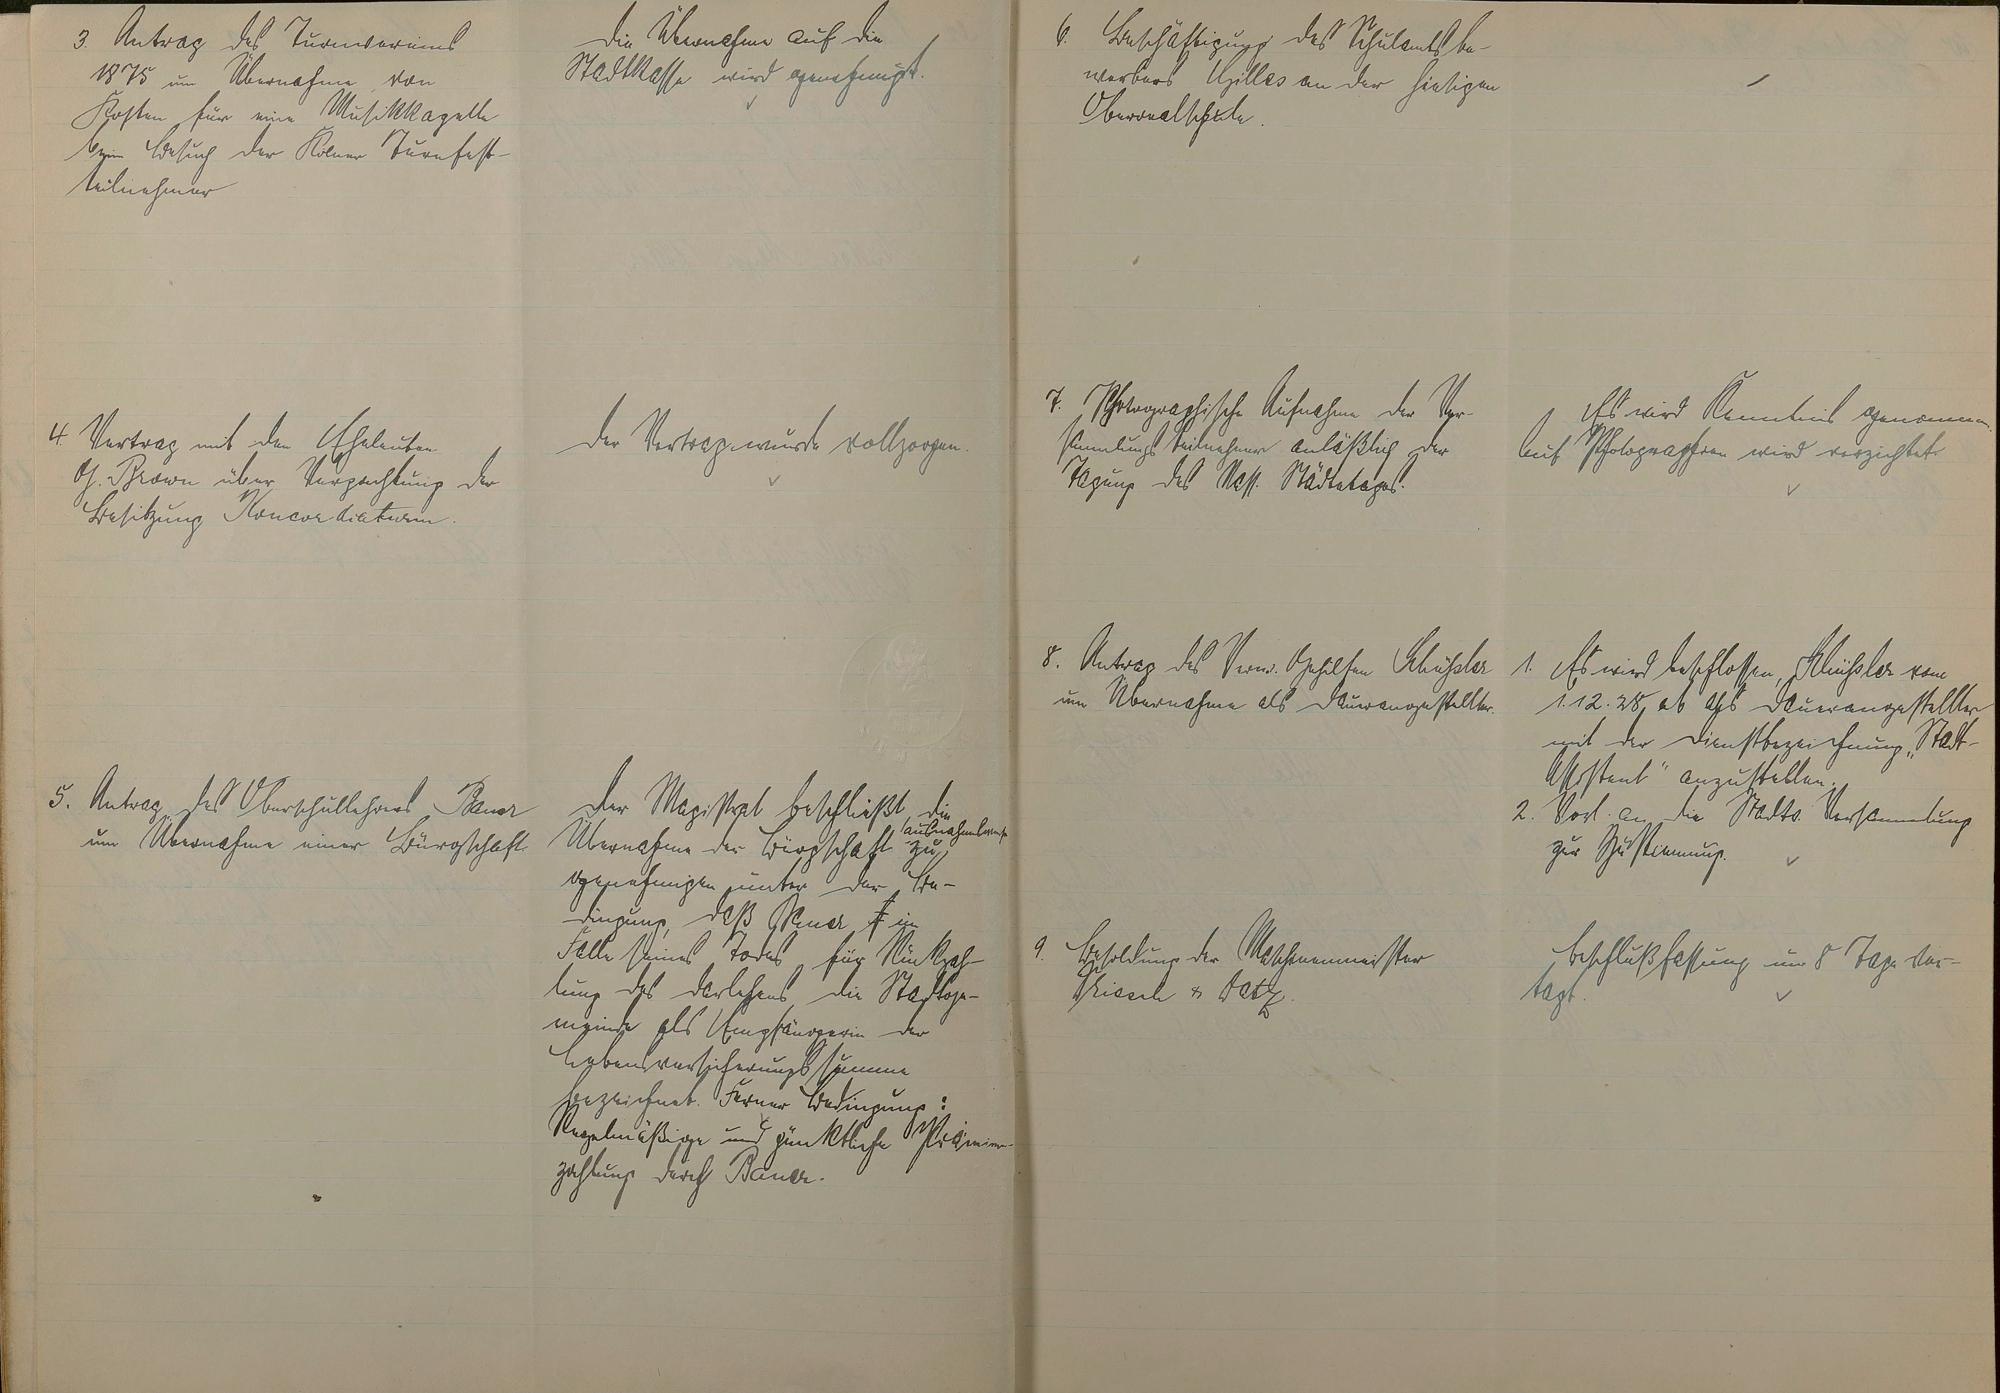 3. Antrag des Turnvereins
1875 um Übernahme von
Kosten für eine Musikkapelle
beim Besuch der Kölner Turnfest-
teilnehmer
Die Übernahme auf die
Stadtkasse wird genehmigt.
4. Vertrag mit den Eheleuten
G. Brown über Verpachtung der
Besitzung Koncordiaturm.
Der Vertrag wurde vollzogen.
5. Antrag des Oberschullehrers Bauer
um Übernahme einer Bürgschaft.
Der Magistrat beschließt die
Übernahme der Bürgschaft ausnahmsweise zu
genehmigen unter der Be-
dingung, daß Bauer im
Falle seines Todes für Rückzah-
lung des Darlehens die Stadtge-
meinde als Empfängerin der
Lebensversicherungssumme
bezeichnet. Ferner Bedingung:
Regelmäßige und pünktliche Prämien-
zahlung durch Bauer.
6. Beschäftigung des Schulamtsbe-
werbers Gilles an der hiesigen
Oberrealschule.
7. Photographische Aufnahme der Ver-
sammlungsteilnehmer anläßlich der
Tagung des Nass. Städtetages.
Es wird Kenntnis genommen.
Auf Photographien wird verzichtet.
8. Antrag des Verw. Gehilfen Schüssler
um Übernahme als Dauerangestellter.
1. Es wird beschlossen, Schüssler vom
1.12.28 ab als Dauerangestellter
mit der Dienstbezeichnung "Stadt-
Assistent" anzustellen.
2. Vorl. an die Stadtv. Versammlung
zur Zustimmung.
9. Besoldung der Maschinenmeister
& Datz.
Beschlußfassung um 8 Tage ver-
tagt.